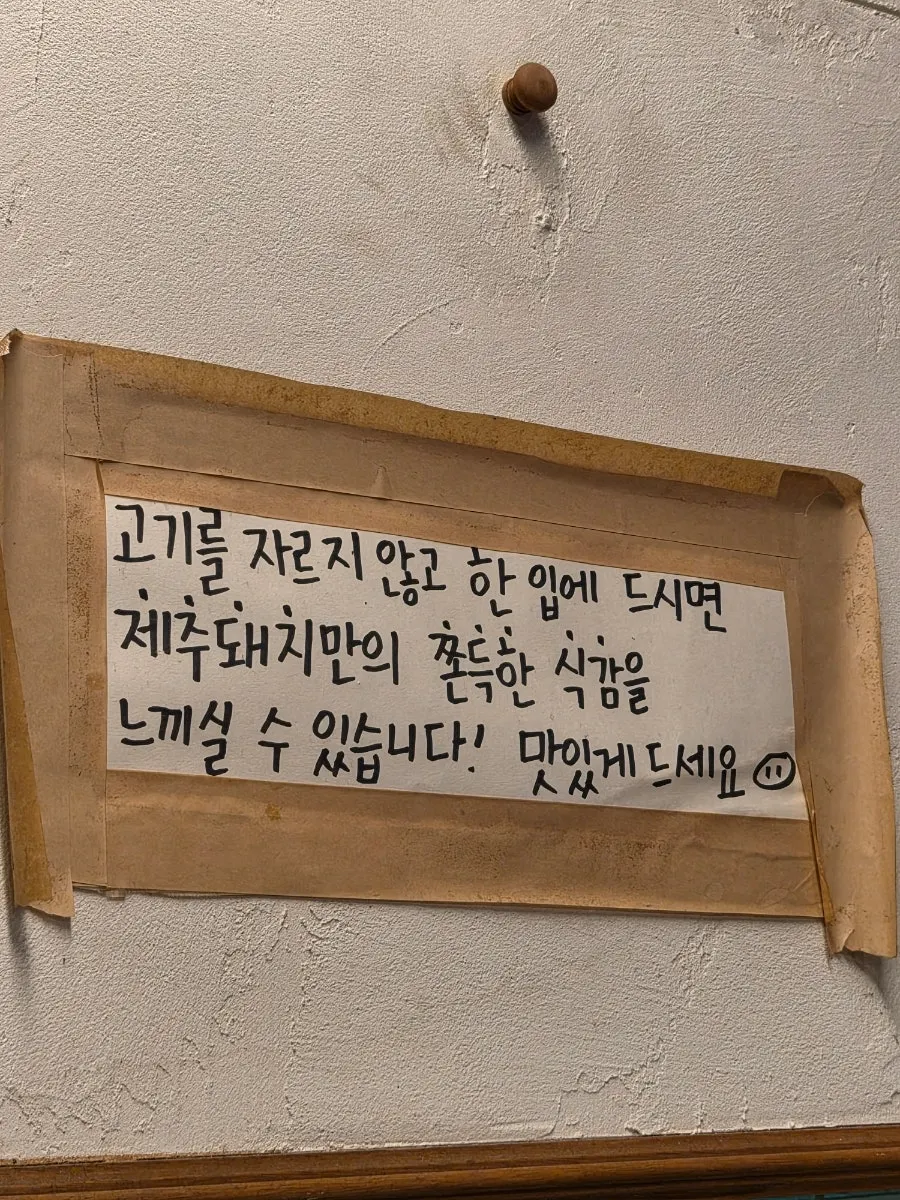 고기를 자르지 않고 한 입에 드시면
제주돼지만의 쫀득한 식감을
느끼실 수 있습니다! 맛있게 드세요